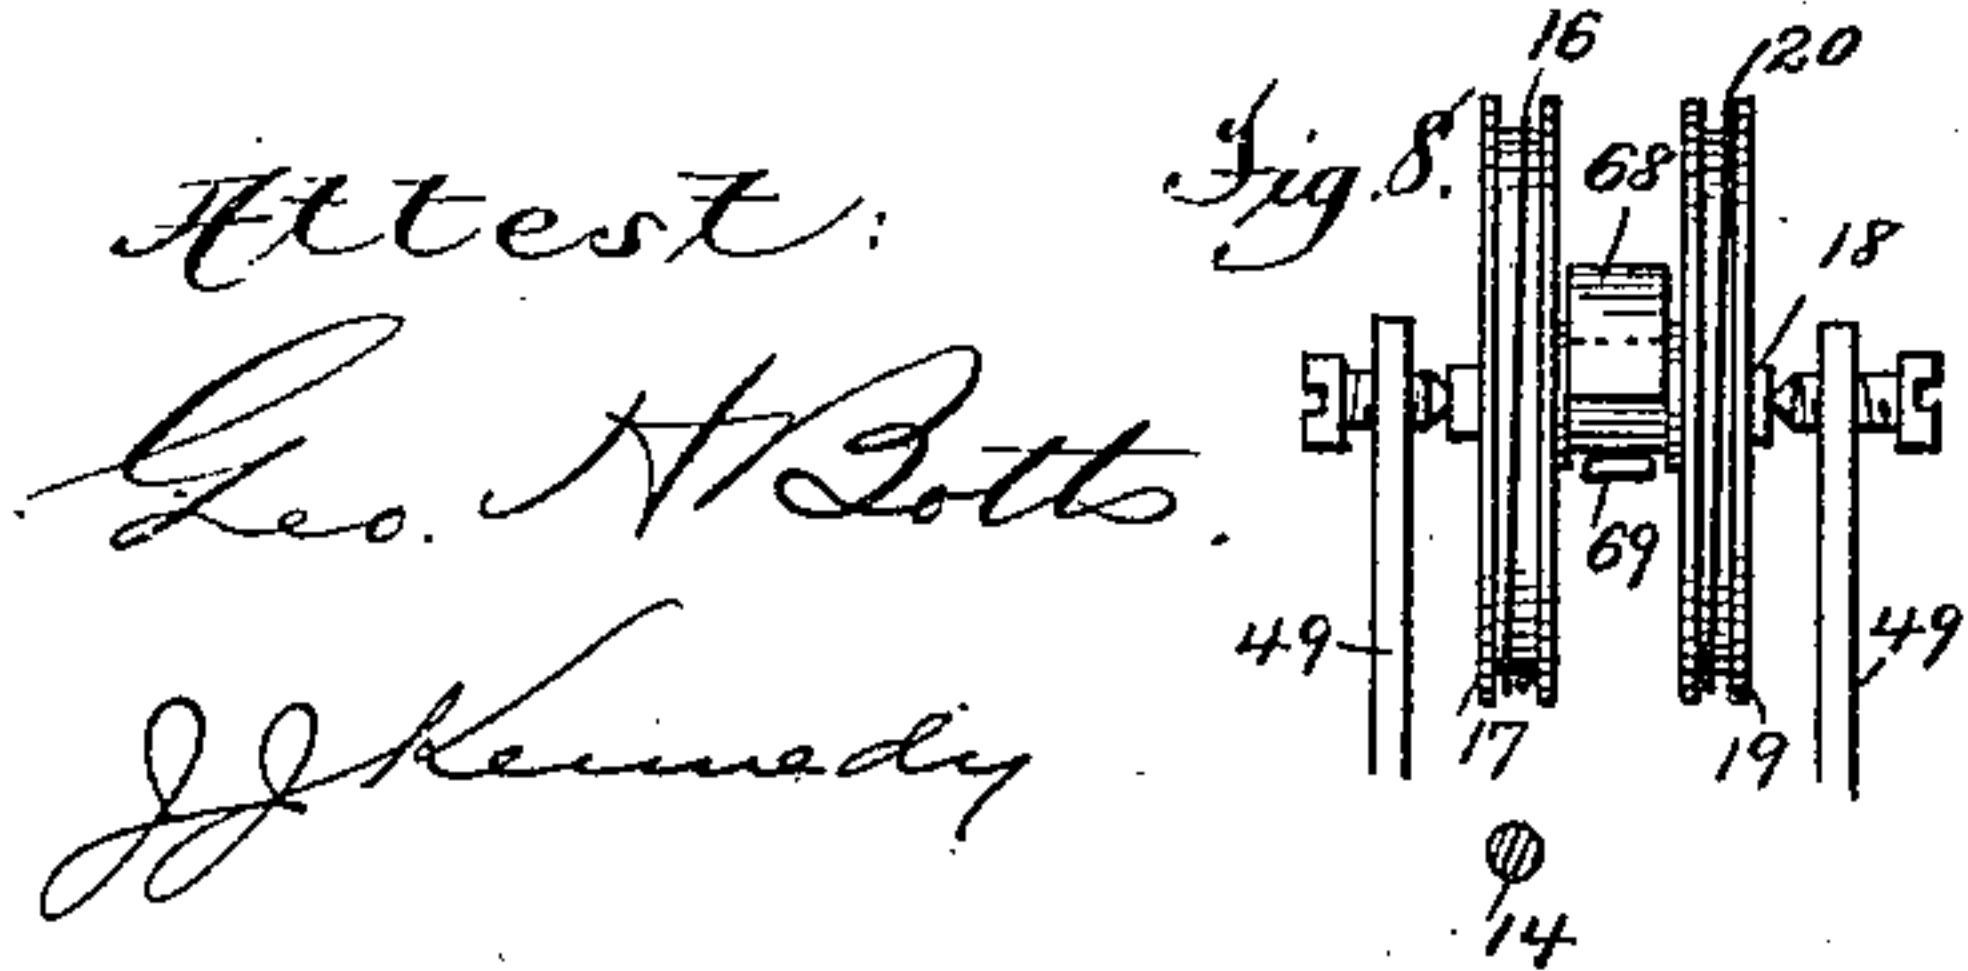 Attest:
Geo. H Botts.
JJ Kennedy
Fig. 8.
16
20
68
18
69
49
49
17
19
14